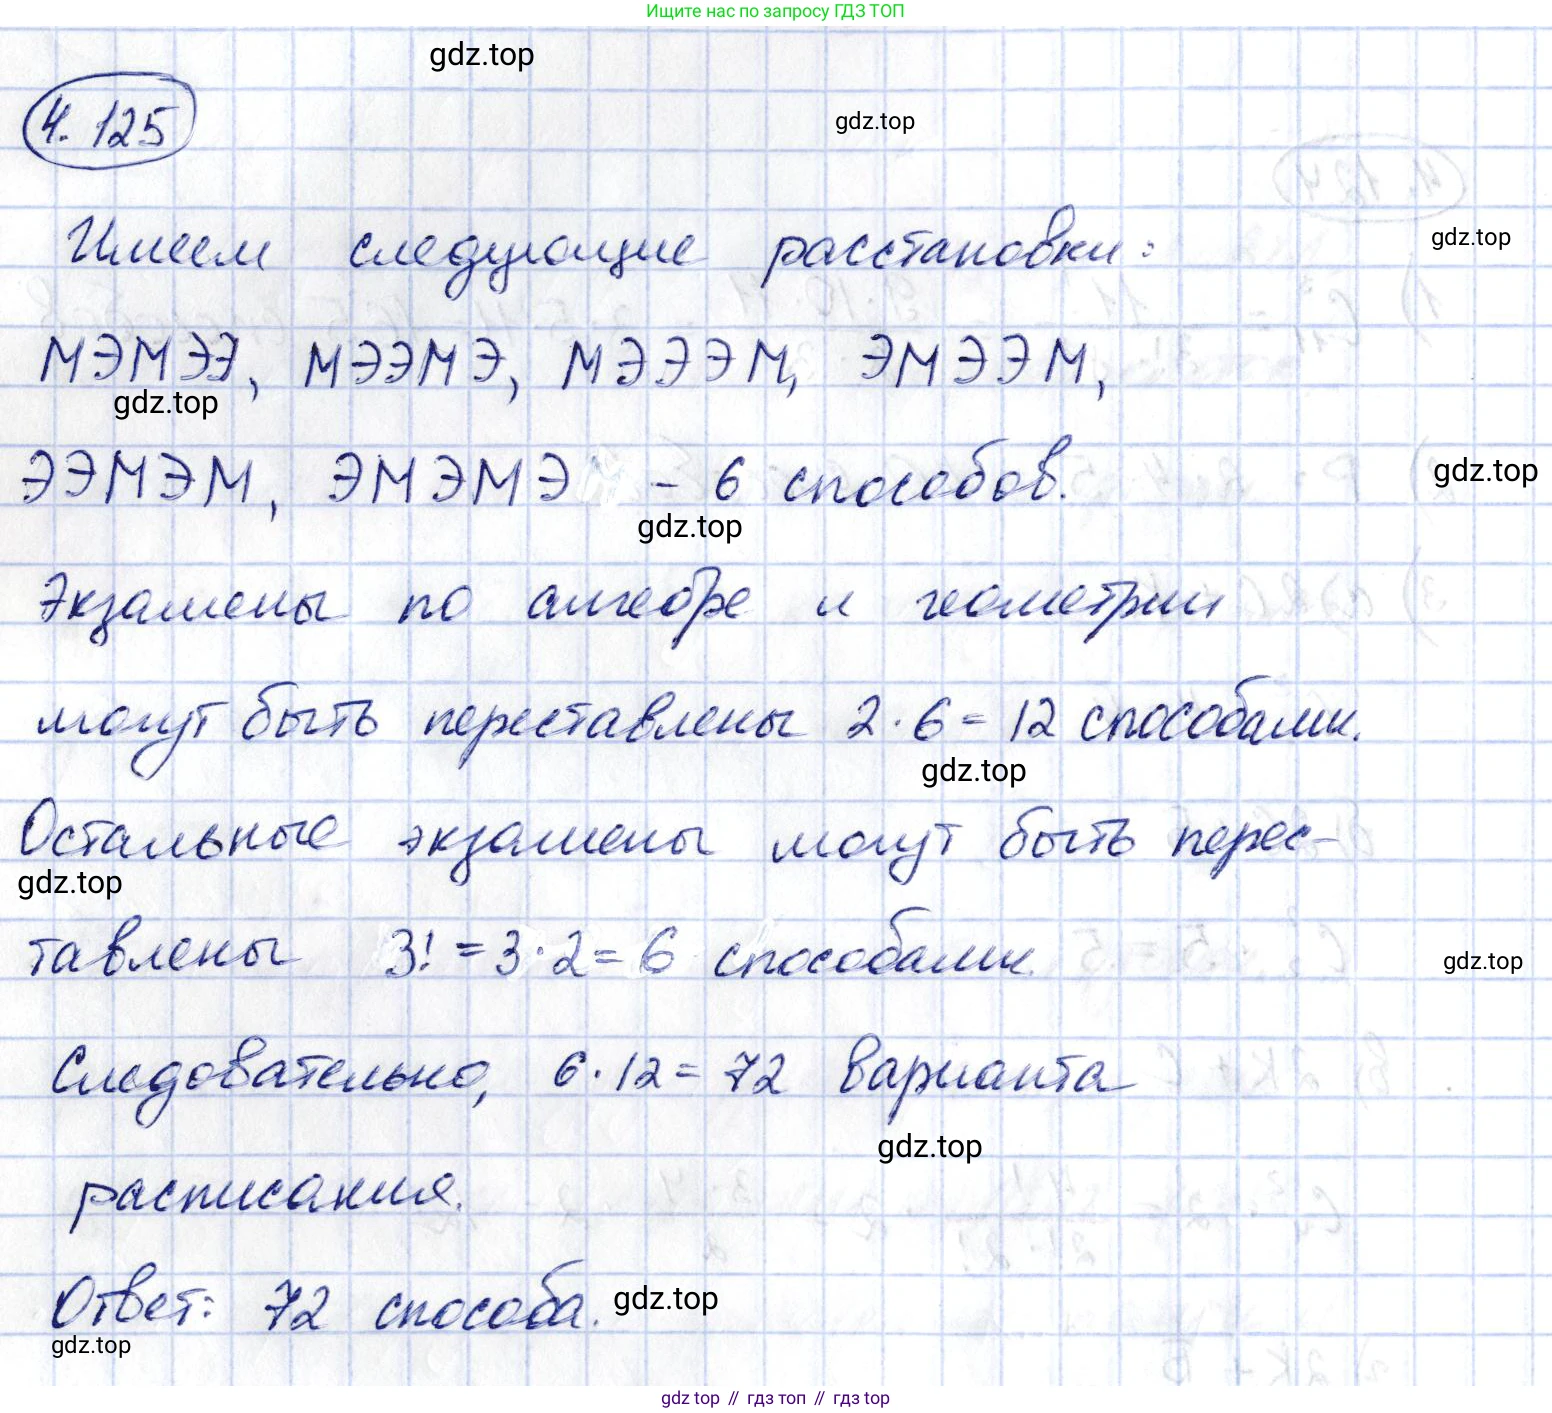 Ищите нас по запросу ГДЗ ТОП
gdz.top
4.125
gdz.top
Имеем следующие расстановки:
gdz.top
МЭМЭЭ, МЭЭМЭ, МЭЭЭМ, ЭМЭЭМ,
gdz.top
ЭЭМЭМ, ЭМЭМЭ - 6 способов.
gdz.top
gdz.top
Экзамены по алгебре и геометрии
могут быть переставлены 2·6=12 способами.
gdz.top
Остальные экзамены могут быть перес-
gdz.top
тавлены 3!=3·2=6 способами.
gdz.top
Следовательно, 6·12=72 варианта
gdz.top
расписания.
Ответ: 72 способа.
gdz.top
gdz.top
gdz top // гдз топ // гдз top